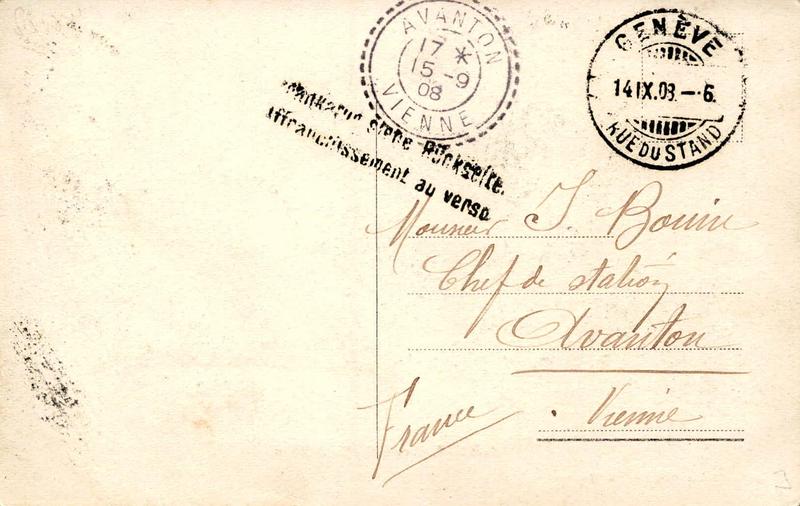 AVANTON
17 *
15 -9
08
VIENNE
GENÈVE
14 IX.08.–6
RUE DU STAND
siehe Rückseite.
affranchissement au verso
Monsieur J. Bouin
Chef de station
Avanton
Vienne
France